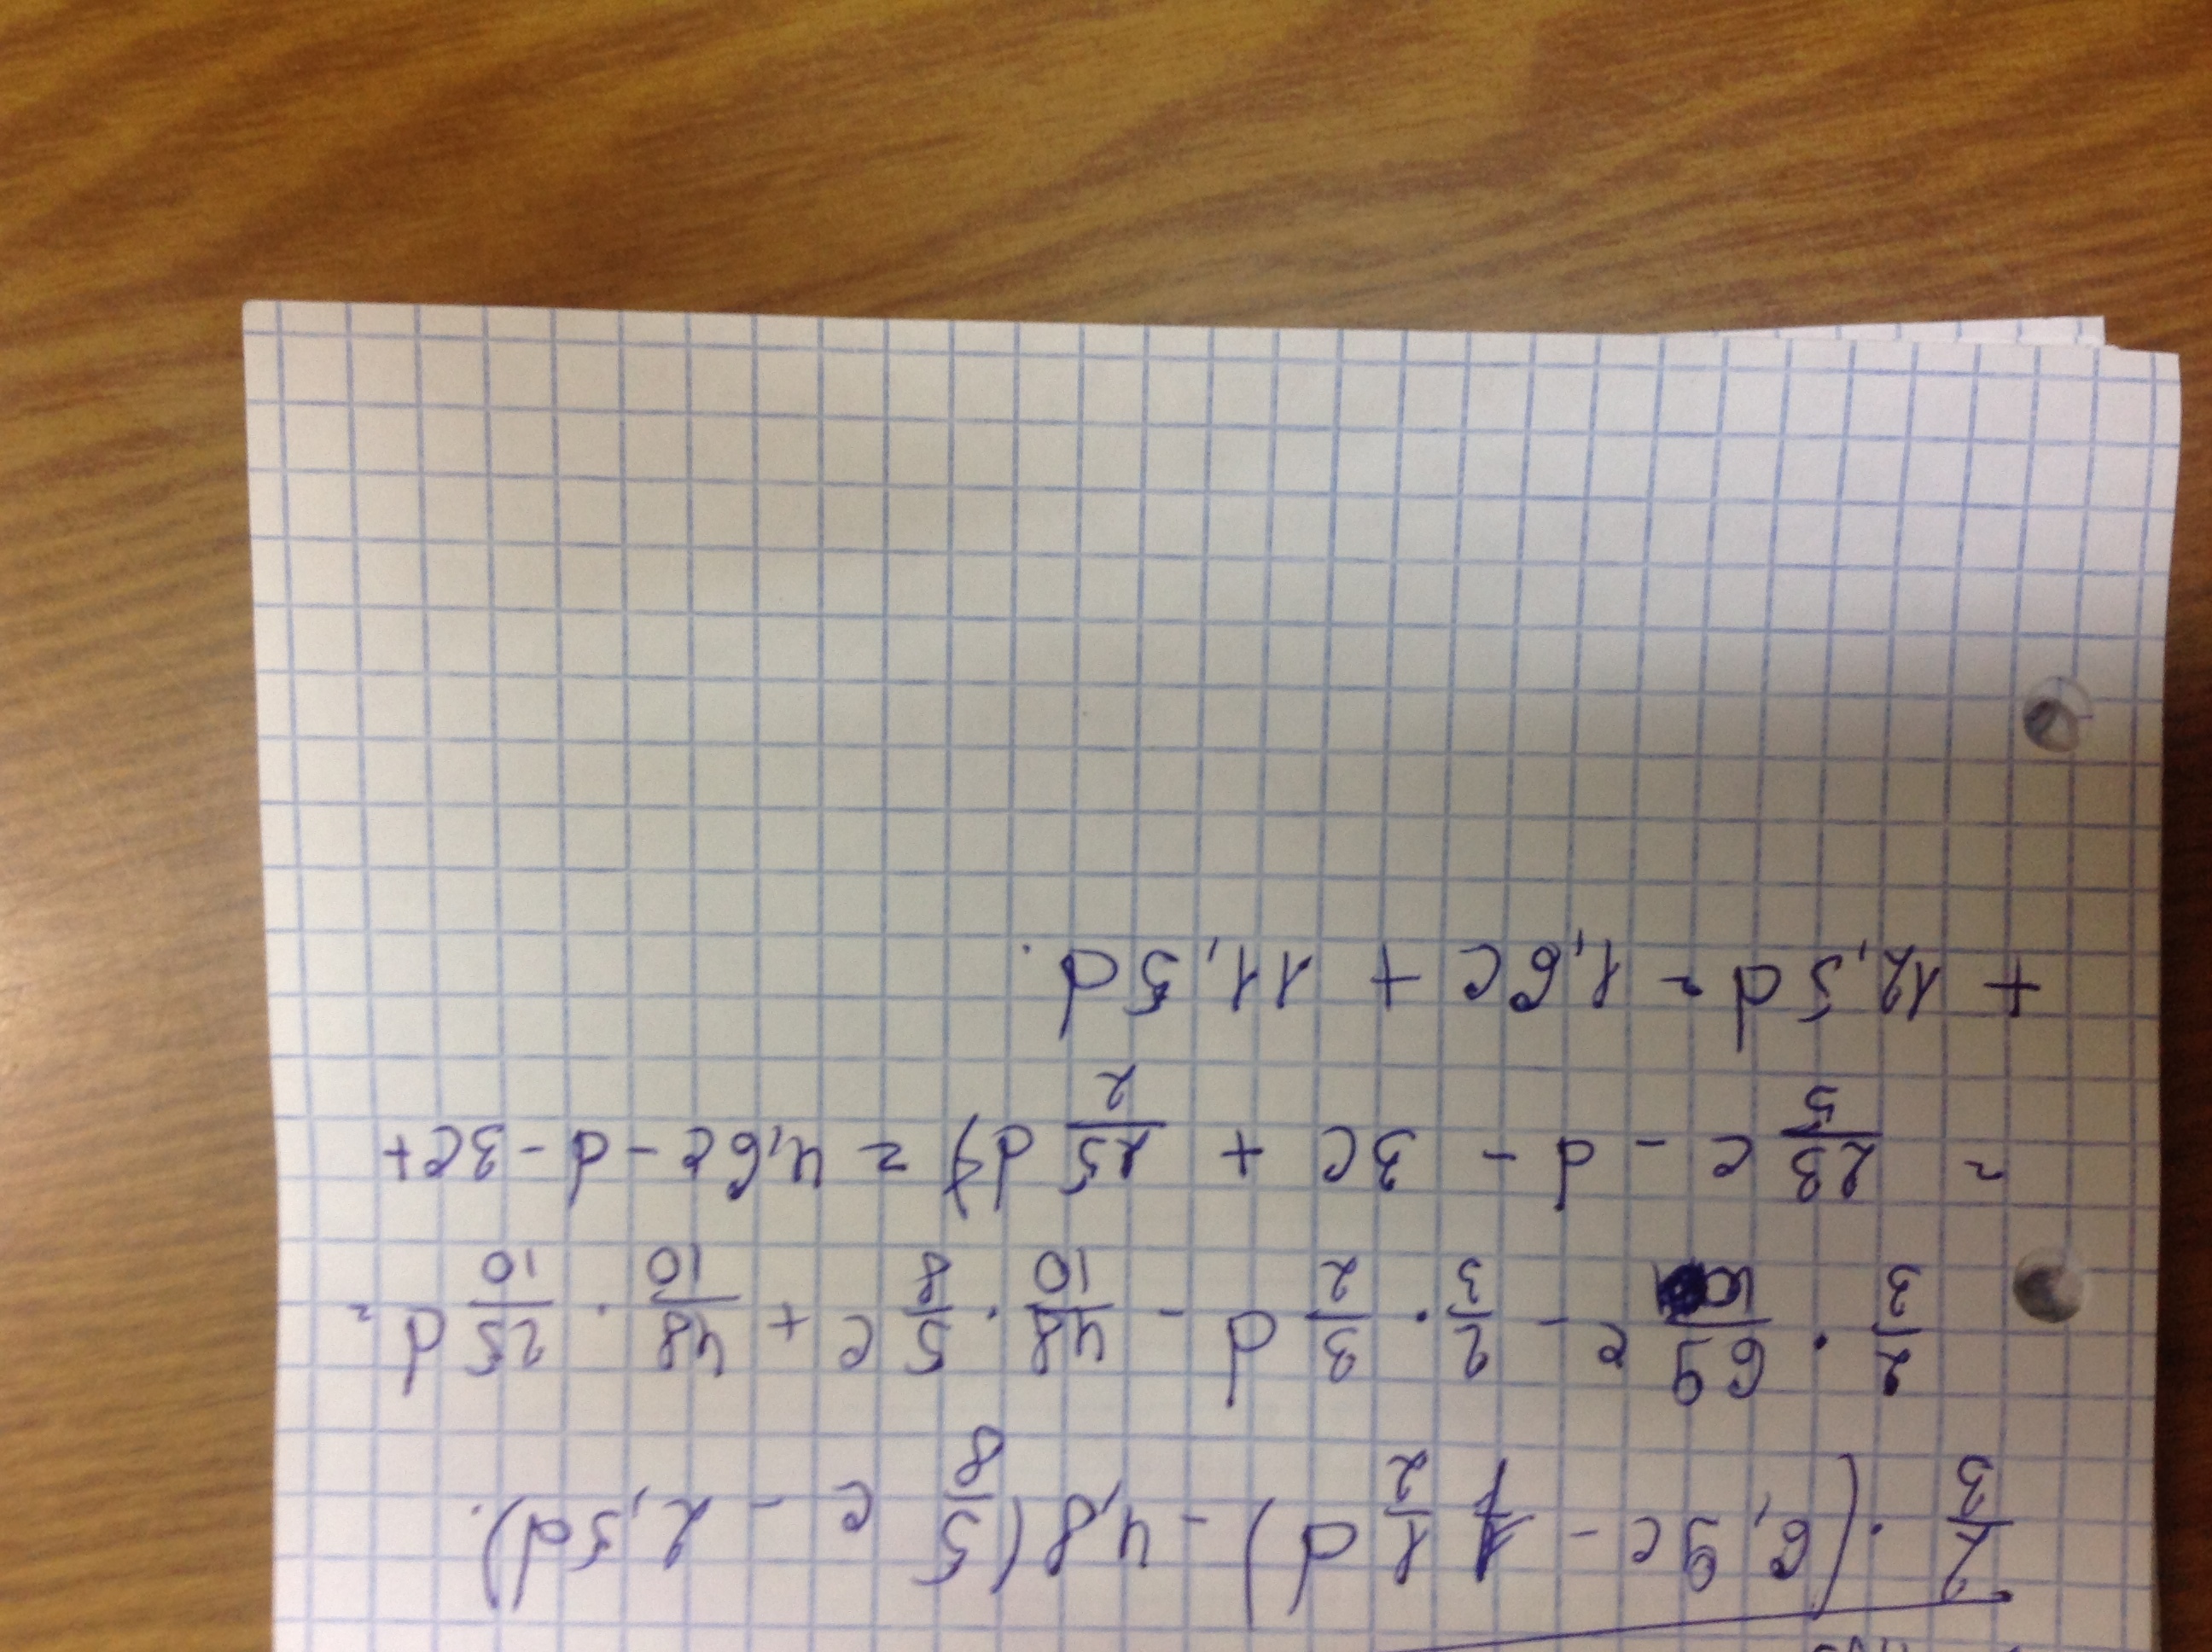 2/3 · (6,9c - 1 1/2 d) - 4,8(5/8 c - 2,5d).
2/3 · 69/10 c - 2/3 · 3/2 d - 48/10 · 5/8 c + 48/10 · 25/10 d =
= 23/5 c - d - 3c + 25/2 d = 4,6c - d - 3c +
+ 12,5d = 1,6c + 11,5d.